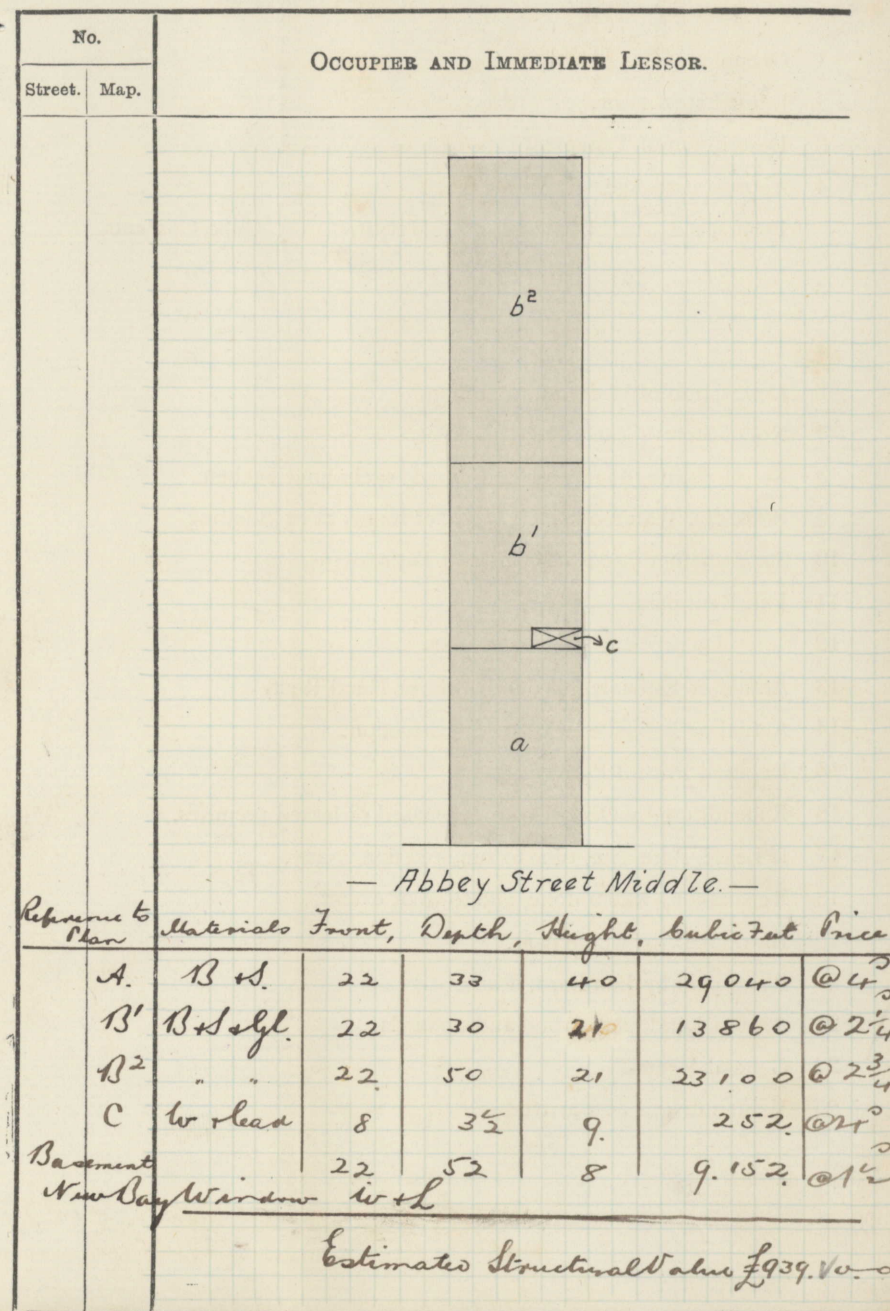 No.
OCCUPIER AND IMMEDIATE LESSOR.
Street. Map.
b²
b'
c
a
— Abbey Street Middle. —
Reference to Plan Materials Front, Depth, Height, Cubic Feet Price
A. B + S. 22 33 40 29040 @ 4
B' B + S + Gl. 22 30 21 13860 @ 2 1/4
B² " " 22 50 21 23100 @ 2 3/4
C W + lead 8 3 1/2 9. 252.
Basement 22 52 8 9.152. @ 1 1/2
New Bay Window W + L
Estimated Structural Value £939.